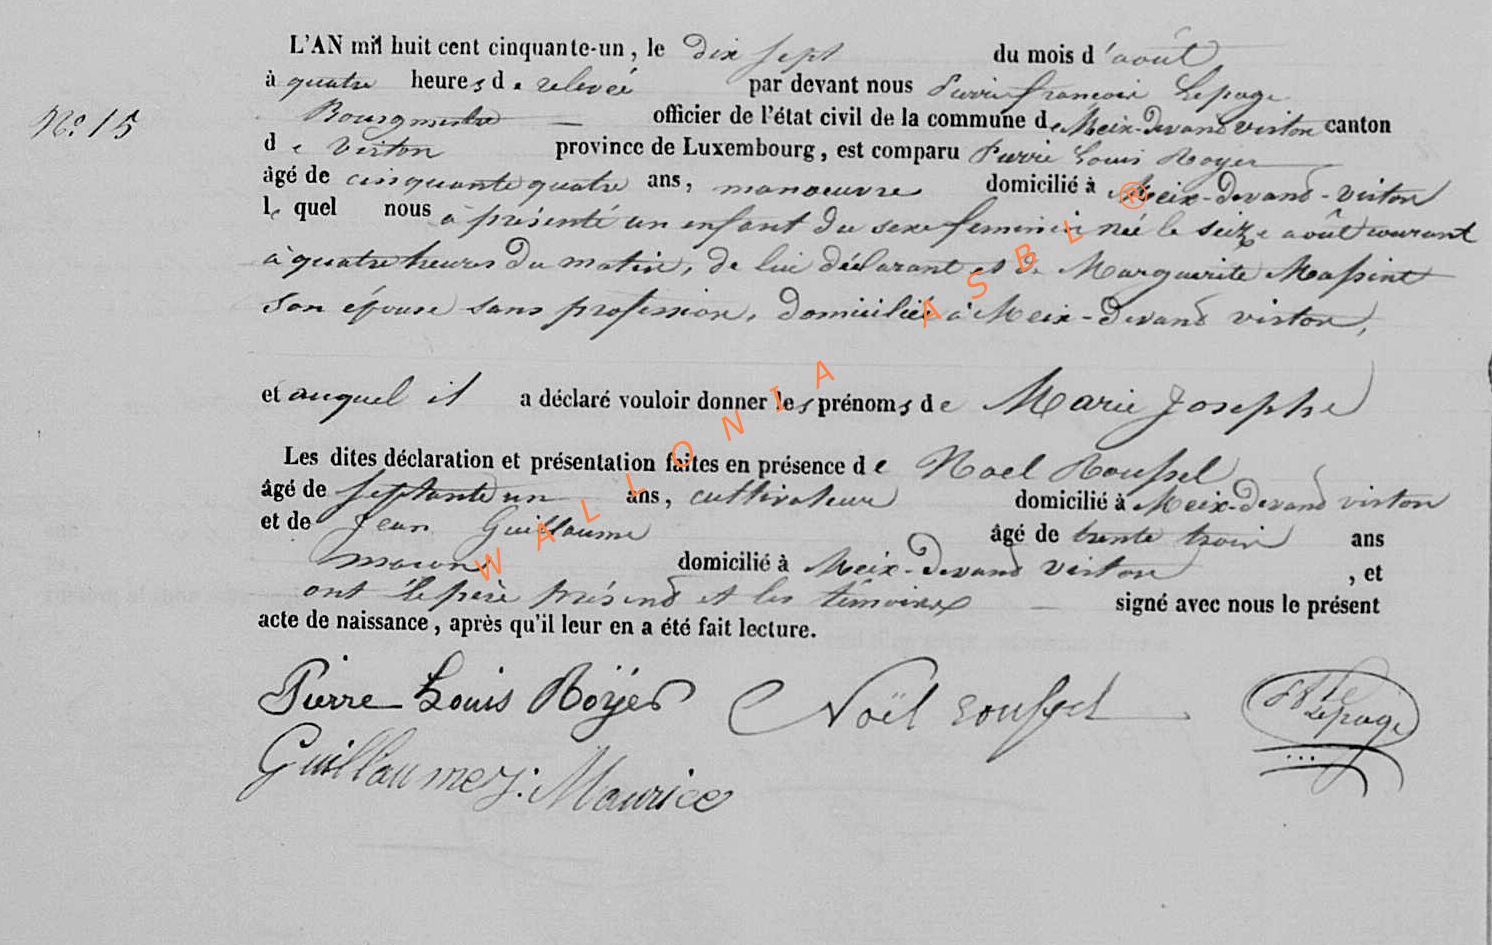 L'AN mil huit cent cinquante-un, le dix sept du mois d'août
à quatre heures de relevée par devant nous Pierre françois Lepage
N.º 15
Bourgmestre — officier de l'état civil de la commune de Meix-devant virton canton
de Virton province de Luxembourg, est comparu Pierre Louis Royer
âgé de cinquante quatre ans, manoeuvre domicilié à Meix-devant-virton
lequel nous a présenté un enfant du sexe feminin née le seize août courant
à quatre heures du matin, de lui déclarant et de Marguerite Massint
son épouse sans profession, domicilié à Meix-devant virton,
et auquel il a déclaré vouloir donner les prénoms de Marie Josephe
Les dites déclaration et présentation faites en présence de Noel Roussel
âgé de septante un ans, cultivateur domicilié à Meix-devant virton
et de Jean Guillaume âgé de trente trois ans
macon domicilié à Meix-devant virton, et
ont le père présent et les témoins — signé avec nous le présent
acte de naissance, après qu'il leur en a été fait lecture.
Pierre Louis Röÿer Noël roussel Lepage
Guillaume J: Maurice
WALLONIA ASBL ®